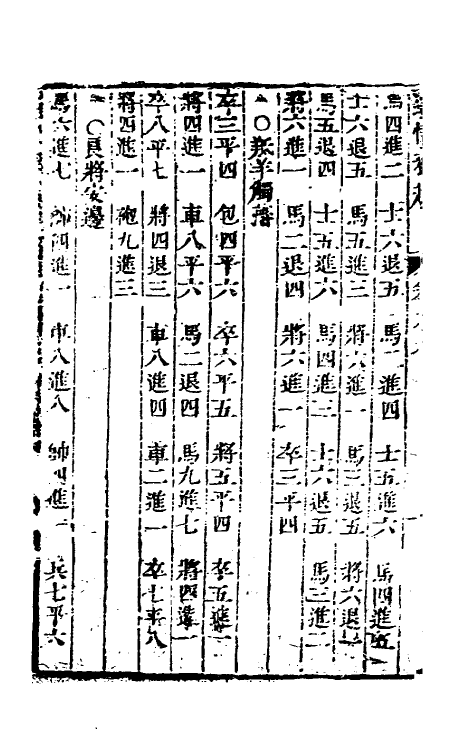 馬四進二 士六退五 馬二進四 士五進六 馬四進五
士六退五 馬五進三 將六進一 馬三退五 將六退一
馬五退四 士五進六 馬四進三 士六退五 馬三進二
將六進一 馬二退四 將六進一 卒三平四
○羝羊觸藩
卒三平四 包四平六 卒六平五 將五平四 卒五進一
將四進一 車八平六 馬二退四 馬九進七 將四進一
卒八平七 將四退三 車八進四 車二進一 卒七平八
將四進一 砲九進三
○良將安邊
馬六進七 帥四進一 車八進八 帥四進一 兵七平六